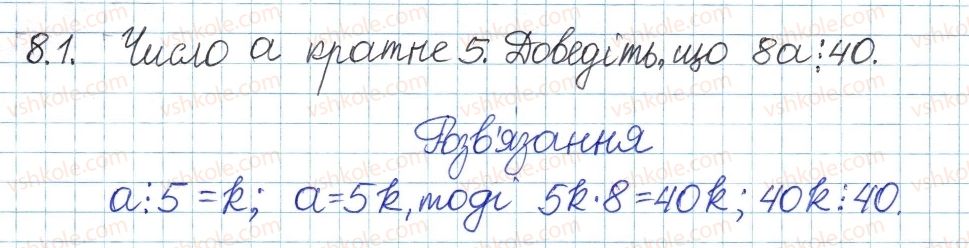 8.1. Число a кратне 5. Доведіть, що 8a⋮40.
Розв'язання
a⋮5 = k; a = 5k, тоді 5k·8 = 40k; 40k⋮40.